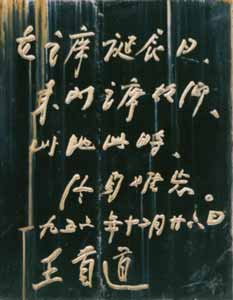 在主席诞辰日、
来到主席故乡、
此地此时、
怀念。
一九五六年十二月廿六日
王首道